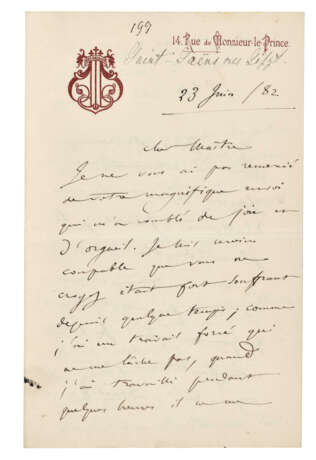 199
14. Rue de Monsieur-le-Prince
Saint-Saëns
23 Juin / 82
Cher Maître
Je ne vous ai pas remercié
de votre magnifique envoi
qui m'a comblé de joie et
d'orgueil. Je suis moins
coupable que vous ne
croyez étant fort souffrant
depuis quelque temps ; comme
j'ai un travail forcé qui
ne me lâche pas, quand
j'ai travaillé pendant
quelques heures il ne me